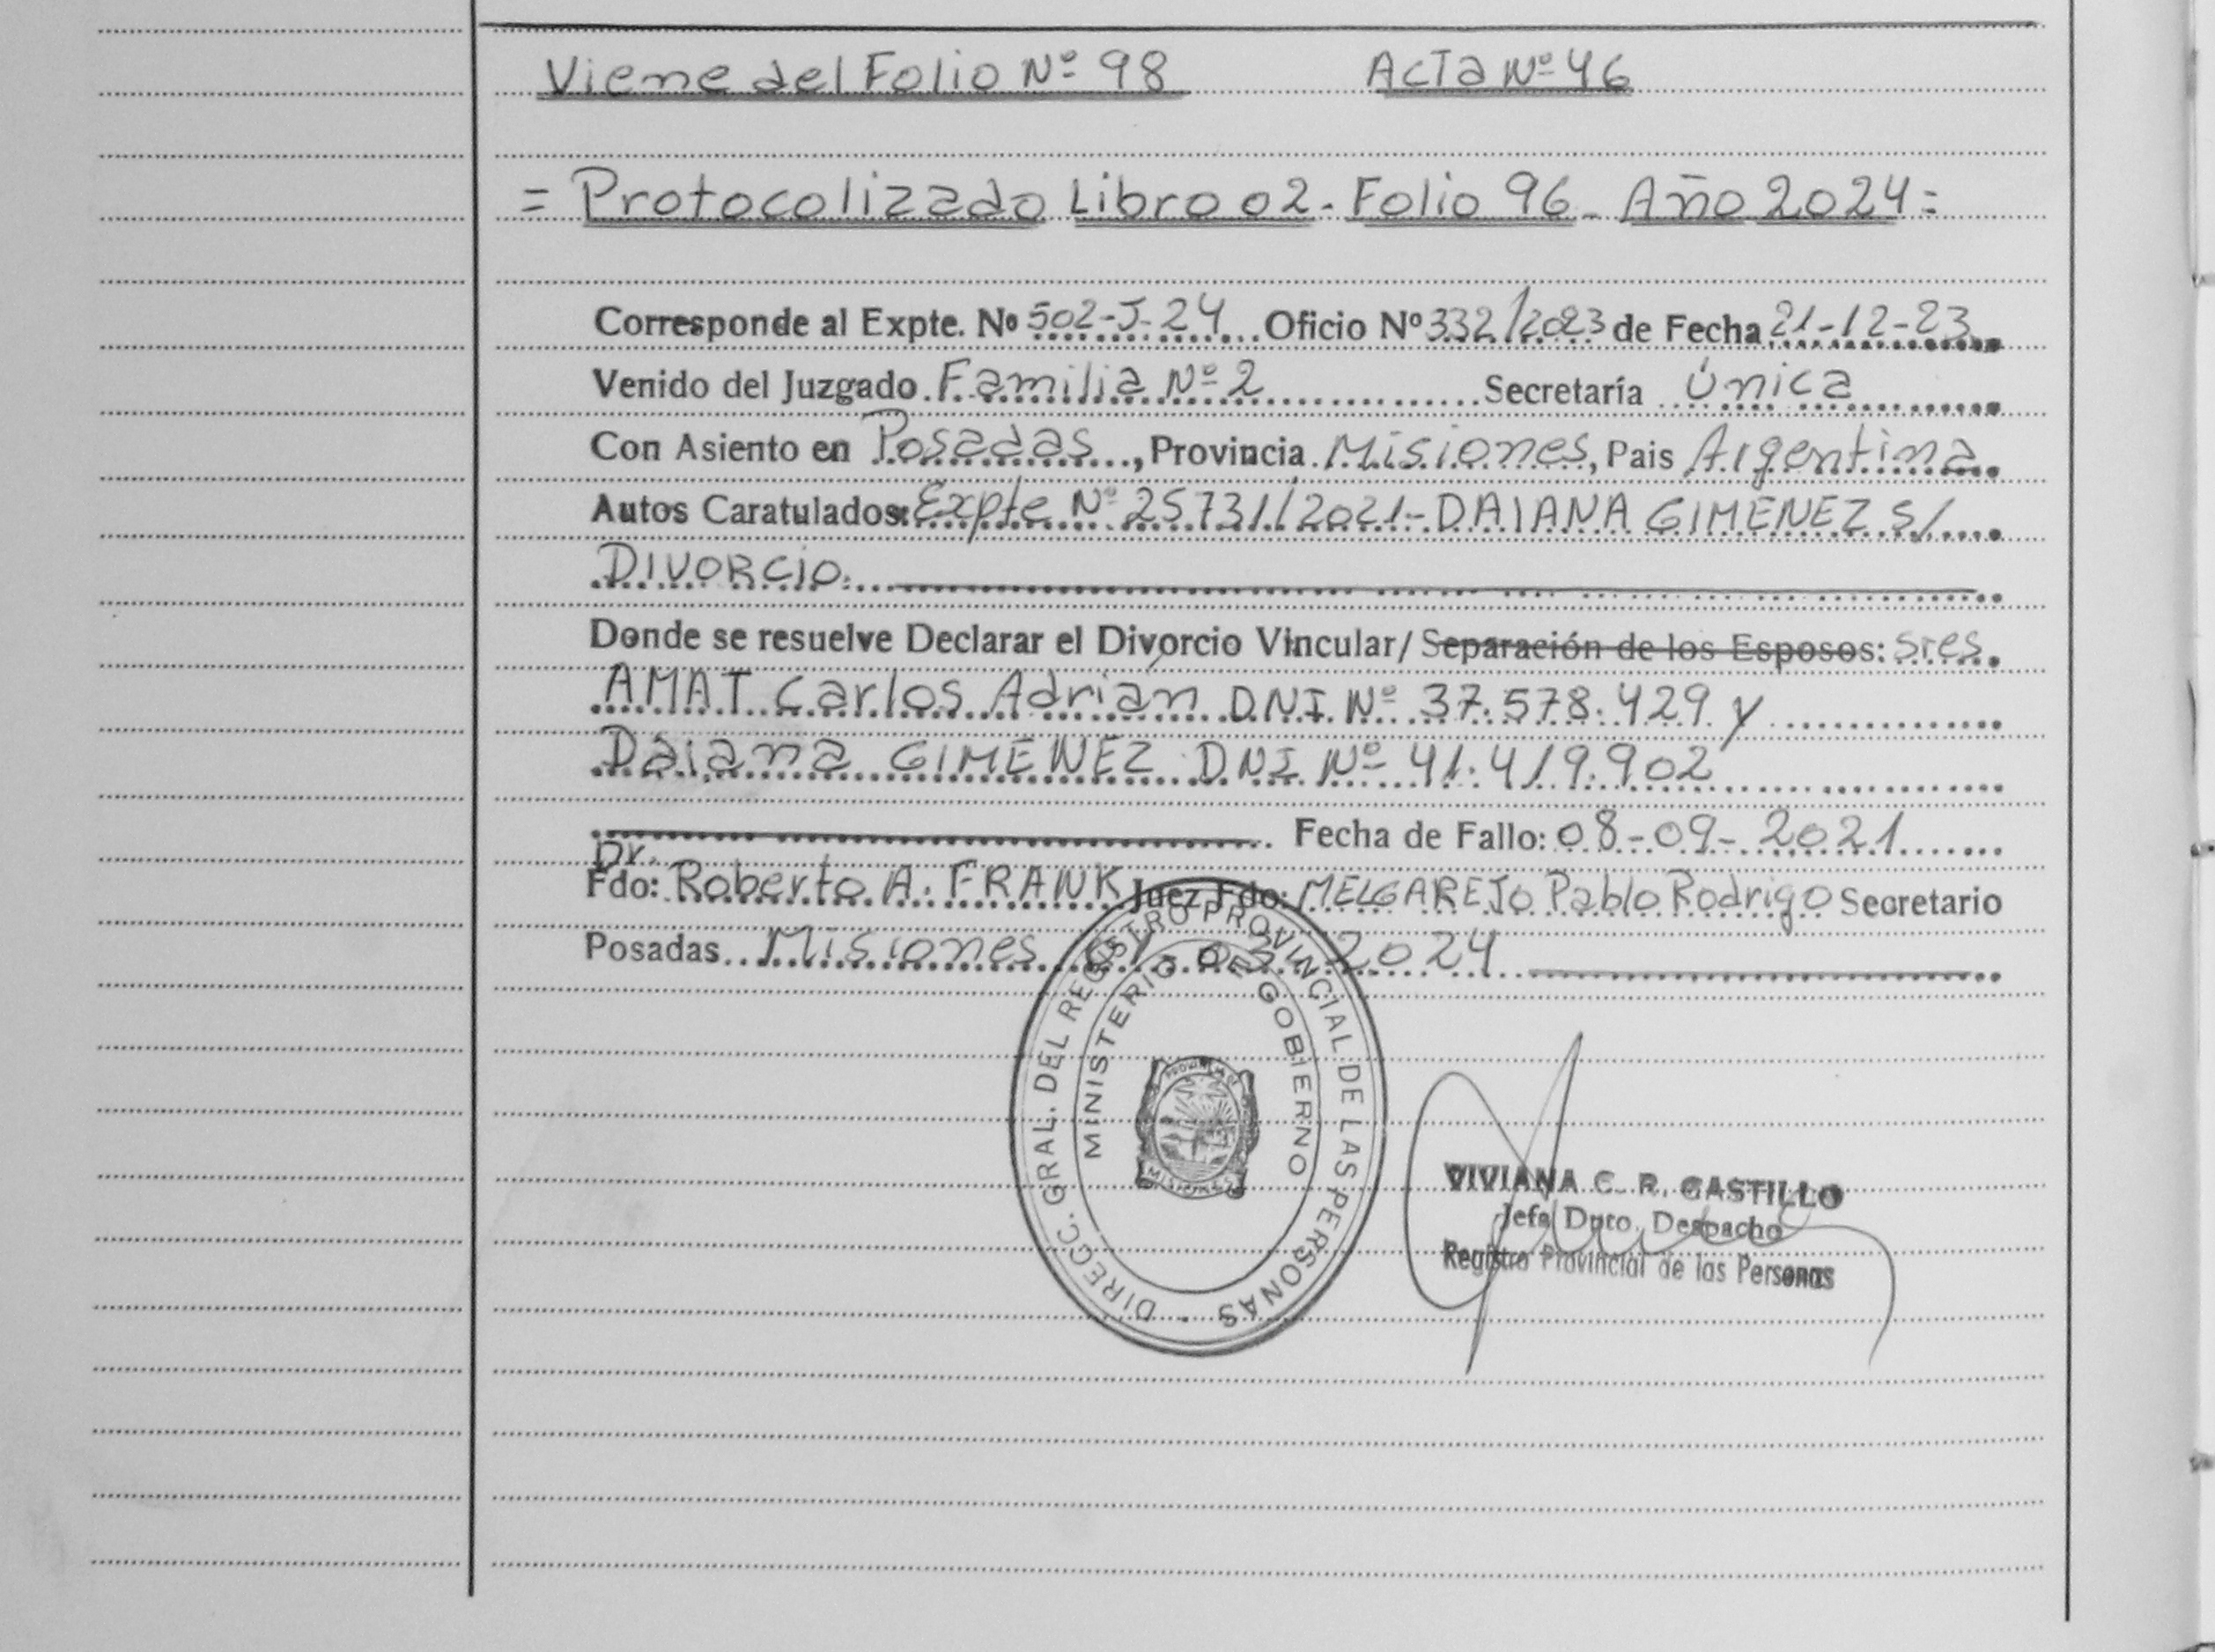 Viene del Folio Nº 98 Acta Nº 46
= Protocolizado Libro 02 - Folio 96 - Año 2024 =
Corresponde al Expte. Nº 502-J-24 Oficio Nº 332/2023 de Fecha 21-12-23
Venido del Juzgado Familia Nº 2 Secretaría Única
Con Asiento en Posadas, Provincia Misiones, Pais Argentina
Autos Caratulados: Expte Nº 25731/2021 - DAIANA GIMENEZ S/
DIVORCIO.
Donde se resuelve Declarar el Divorcio Vincular/ Separación de los Esposos: Sres.
AMAT Carlos Adrián D.N.I. Nº 37.578.429 y
Daiana GIMENEZ DNI Nº 41.419.902
Fecha de Fallo: 08-09-2021
Dr.
Fdo: Roberto A. FRANK Juez Fdo: MELGAREJO Pablo Rodrigo Secretario
Posadas Misiones 03-2024
DIRECC. GRAL. DEL REGISTRO PROVINCIAL DE LAS PERSONAS
MINISTERIO DE GOBIERNO
PROVINCIA DE
MISIONES
VIVIANA C. R. CASTILLO
Jefa Dpto. Despacho
Registro Provincial de las Personas